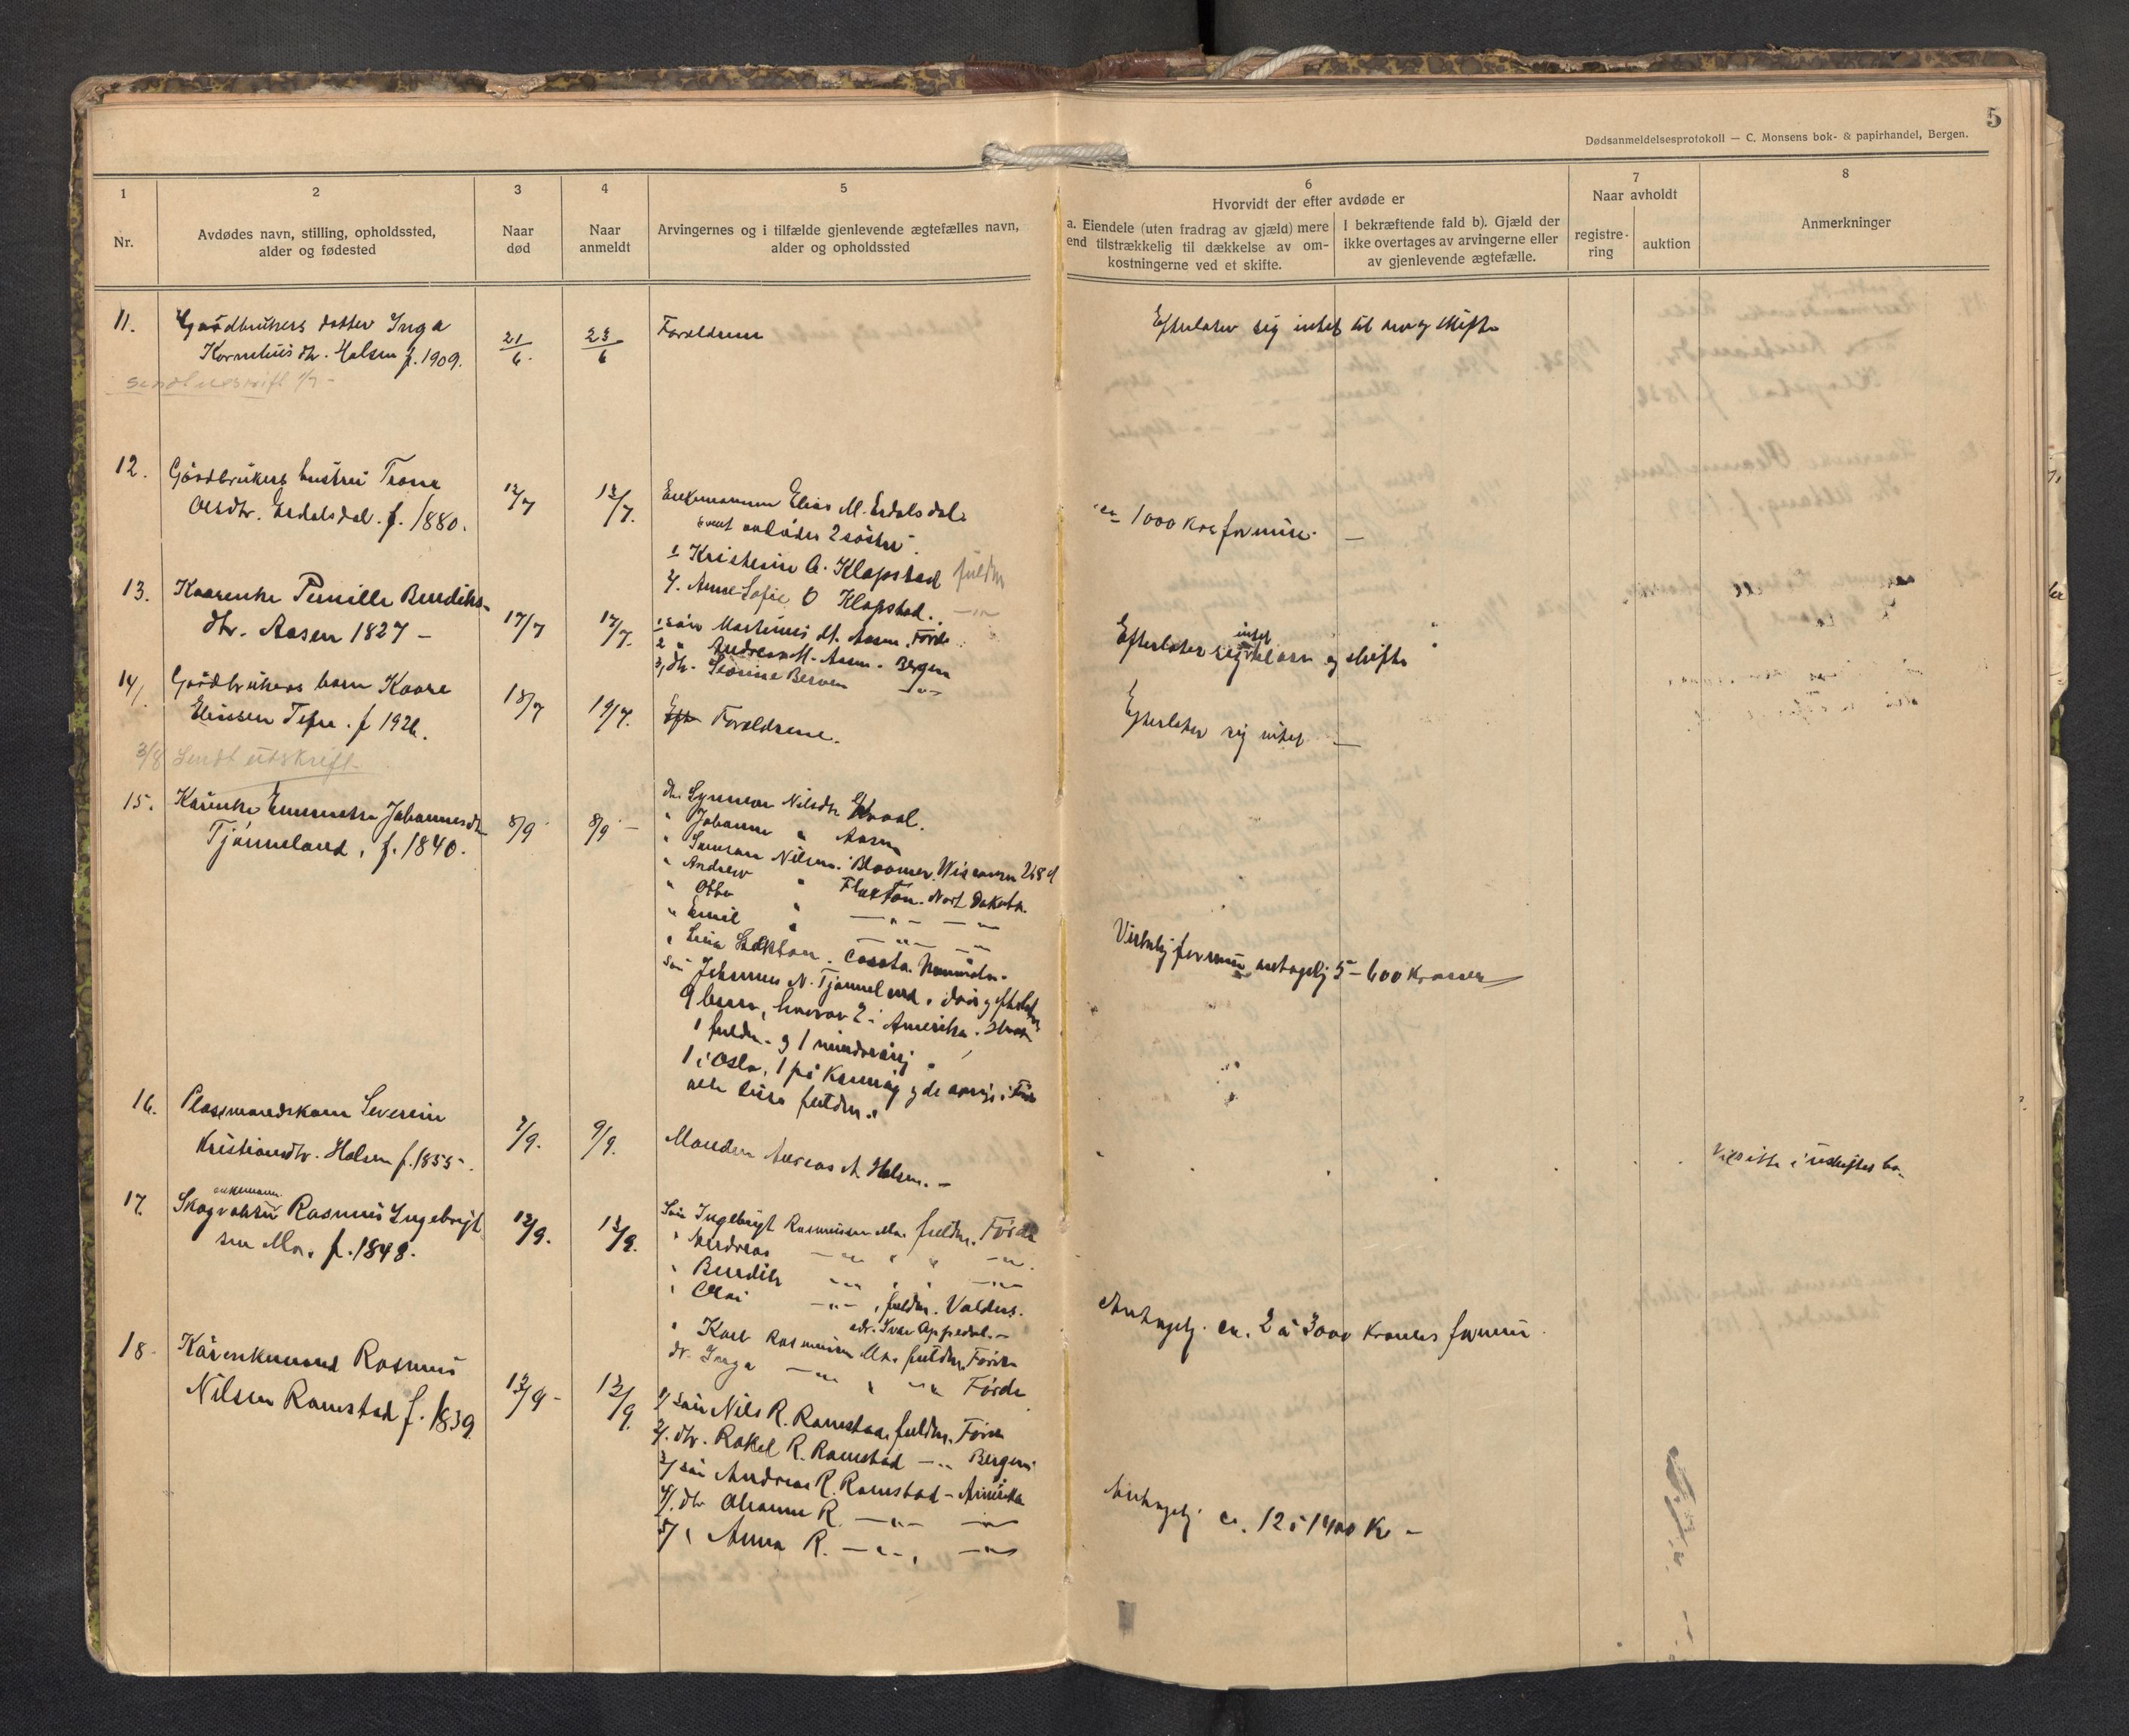 5
Dødsanmeldelsesprotokoll — C. Monsens bok- & papirhandel, Bergen.
1
Nr.
2
Avdødes navn, stilling, opholdssted,
alder og fødested
3
Naar
død
4
Naar
anmeldt
5
Arvingernes og i tilfælde gjenlevende ægtefælles navn,
alder og opholdssted
6
Hvorvidt der efter avdøde er
a. Eiendele (uten fradrag av gjæld) mere
end tilstrækkelig til dækkelse av om-
kostningerne ved et skifte.
I bekræftende fald b). Gjæld der
ikke overtages av arvingerne eller
av gjenlevende ægtefælle.
7
Naar avholdt
registre-
ring
auktion
8
Anmerkninger
11. Gårdbrukers datter Inga
Kornelius dtr. Halsen f. 1909.
21/6. 23/6
Foreldrene
Efterlater sig intet til arv og skifte
12. Gårdbrukers hustru
Olsdtr. Erdalsdal. f. 1880.
12/7 13/7.
Enkemannen Elias M. Erdalsdal.
2 søstre.
1 Kristine O. Klopstad fuldm
2. Anne Sofie O Klopstad.
ca 1000 kr formue. —
13. Kaarenke Pernille Bendiks-
dtr. Aasen 1827 —
17/7 17/7.
1 søn Martinus M. Aasen, Førde
2 " Andreas M. Aasen. Bergen
3, dtr. Berven — " —
Efterlater sig intet til arv og skifte
14/. Gårdbrukers barn Kaare
Eliassen Tefre. f 1926.
18/7 19/7.
Foreldrene.
Efterlater sig intet —
3/8 Sendt utskrift
15. Kårenke Johannesdtr
Tjønneland, f. 1840.
8/9 8/9 —
dtr. Synneva Nilsdtr
" Johanne " Aasen
" Samson Nilsen. Bloomer. Wisconsin
" Andrew " Flaxton. Nort Dakota.
" Otto " — " — — " —
" Emil " — " — — " —
" Lina
søn Johannes N. Tjønneland, død og efterlatt
9 barn, hvorav 2 i Amerika.
1 fuldm. og 1 mindreårig
1 i Oslo, 1 på og de øvrige i Førde
alle disse fuldm.
formue antagelig 5–600 kroner
16. Plassmandskone Severine
Kristiansdtr. Halsen f. 1855.
7/9. 9/9.
Manden Andreas A. Halsen. —
i uskiftet bo.
17. enkemann
Skogvokter Rasmus Ingebrigt
sen Mo. f. 1848.
12/9. 13/9.
Søn Ingebrigt Rasmussen Mo. fuldm. Førde
" Andreas — " — " " — " —.
" Bendik — " — " " — " —
" Olai — " —, fuldm. Valdres.
adr. Ivar Appedal. —
" Karl Rasmussen Mo. fuldm. Førde
dr. Inga — " — " — " — Førde
Antagelig. ca. 2 à 3000 kroner formue.
18. Kårenkemand Rasmus
Nilsen Ramstad f. 1839
13/9 — 13/9.
1/ søn Nils R. Ramstad fuldm. Førde
2/. dtr. Rakel R. Ramstad — " Bergen
3/ søn Andreas R. Ramstad — Amerika
4/. dtr Oleanna R. — " — — " —
5/ " Anna R. — " —, — " —
Antagelig. ca. 12 à 1400 Kr —